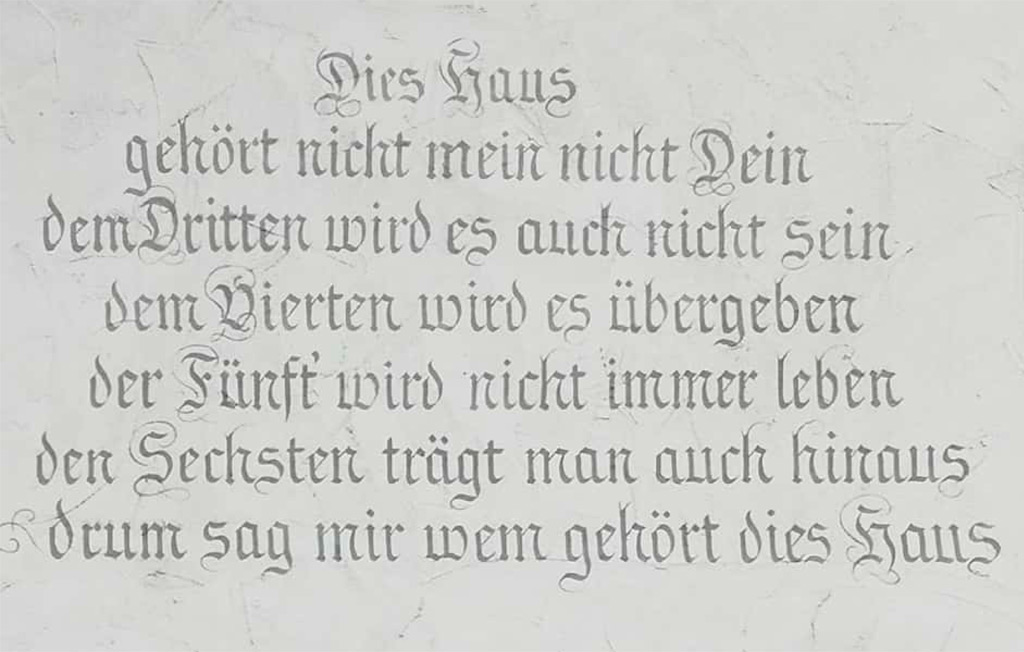 Dies Haus
gehört nicht mein nicht Dein
dem Dritten wird es auch nicht sein
dem Vierten wird es übergeben
der Fünft' wird nicht immer leben
den Sechsten trägt man auch hinaus
drum sag mir wem gehört dies Haus